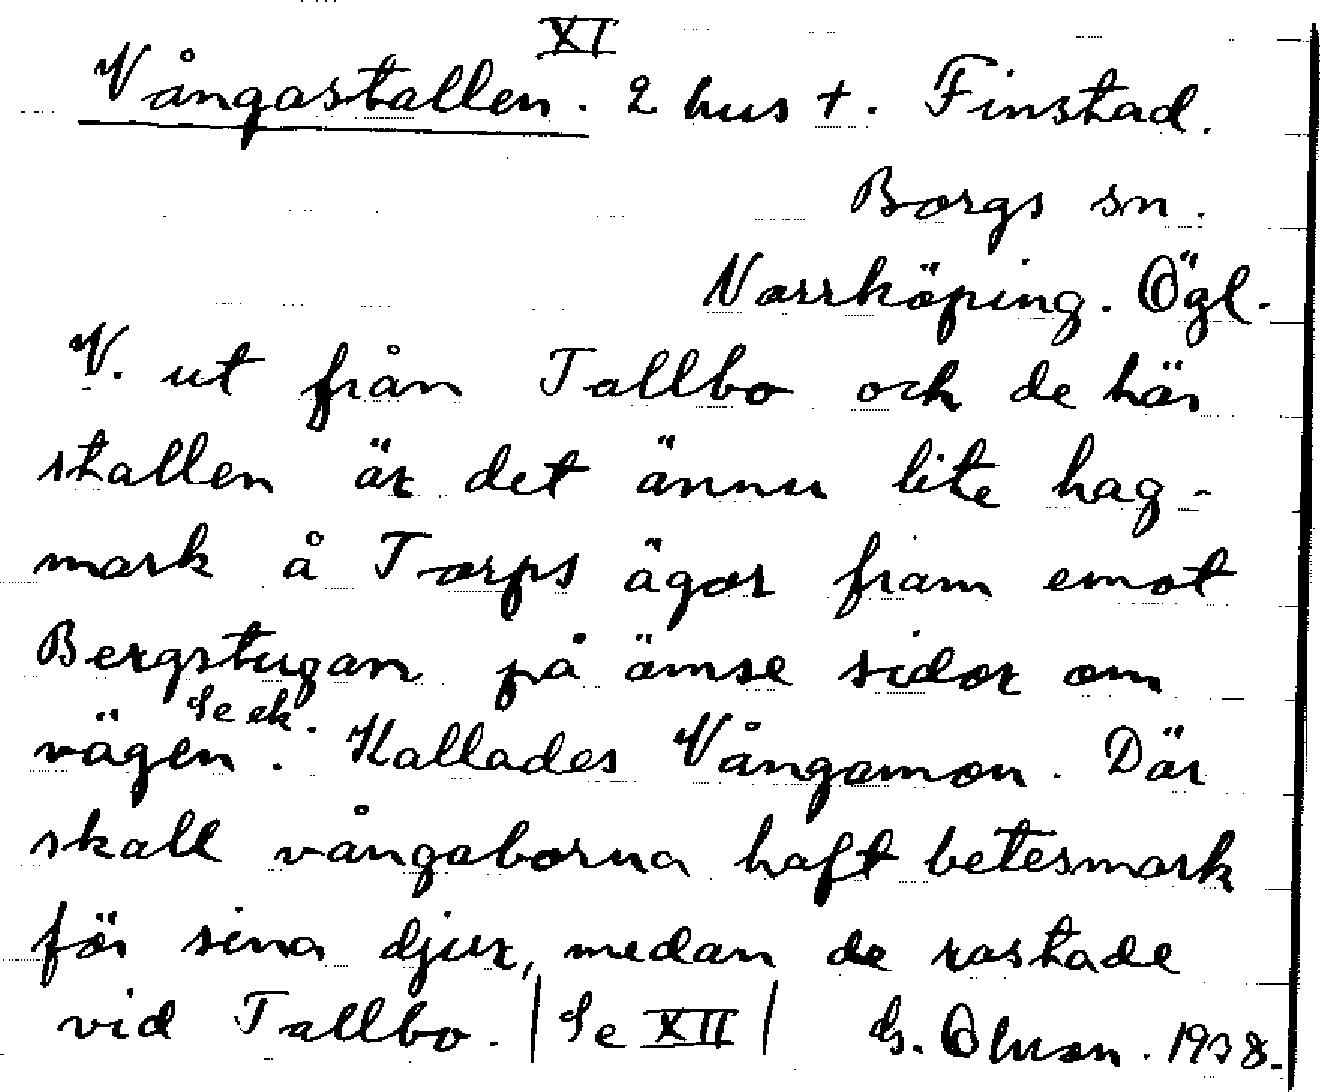 XI
Vångastallen. 2 hus +. Finstad.
Borgs sn.
Norrköping. Ögl.
V. ut från Tallbo och de här
stallen är det ännu lite hag-
mark å Torps ägor fram emot
Bergstugan på ömse sidor om
Se ek.
vägen. Kallades Vångamon. Där
skall vångaborna haft betesmark
för sina djur, medan de rastade
vid Tallbo. | Se XII | G. Olsson. 1938.